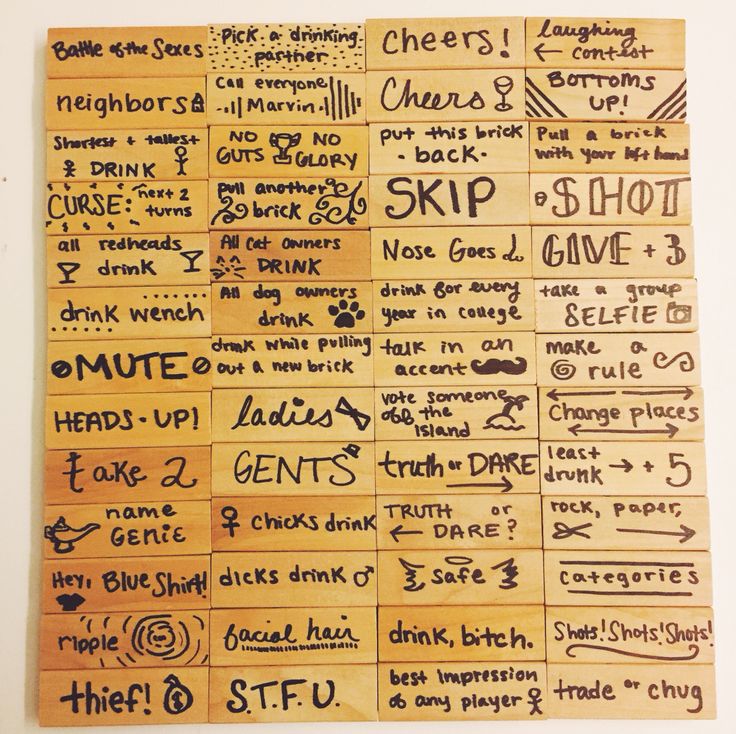 Battle of the Sexes
Pick a drinking
partner
cheers!
laughing
contest
neighbors
Call everyone
Marvin
Cheers
BOTTOMS
UP!
Shortest + tallest
DRINK
NO NO
GUTS GLORY
put this brick
- back -
Pull a brick
with your left hand
CURSE: next 2
turns
pull another
brick
SKIP
SHOT
all redheads
drink
All cat owners
DRINK
Nose Goes
GIVE + 3
drink wench
All dog owners
drink
drink for every
year in college
take a group
SELFIE
MUTE
drink while pulling
out a new brick
talk in an
accent
make a
rule
HEADS-UP!
ladies
vote someone
off the
island
Change places
take 2
GENTS
truth or DARE
least
drunk → + 5
name
GENIE
chicks drink
TRUTH or
DARE?
rock, paper,
Hey, Blue Shirt!
dicks drink
safe
categories
ripple
facial hair
drink, bitch.
Shots! Shots! Shots!
thief! $
S.T.F.U.
best impression
of any player
trade or chug